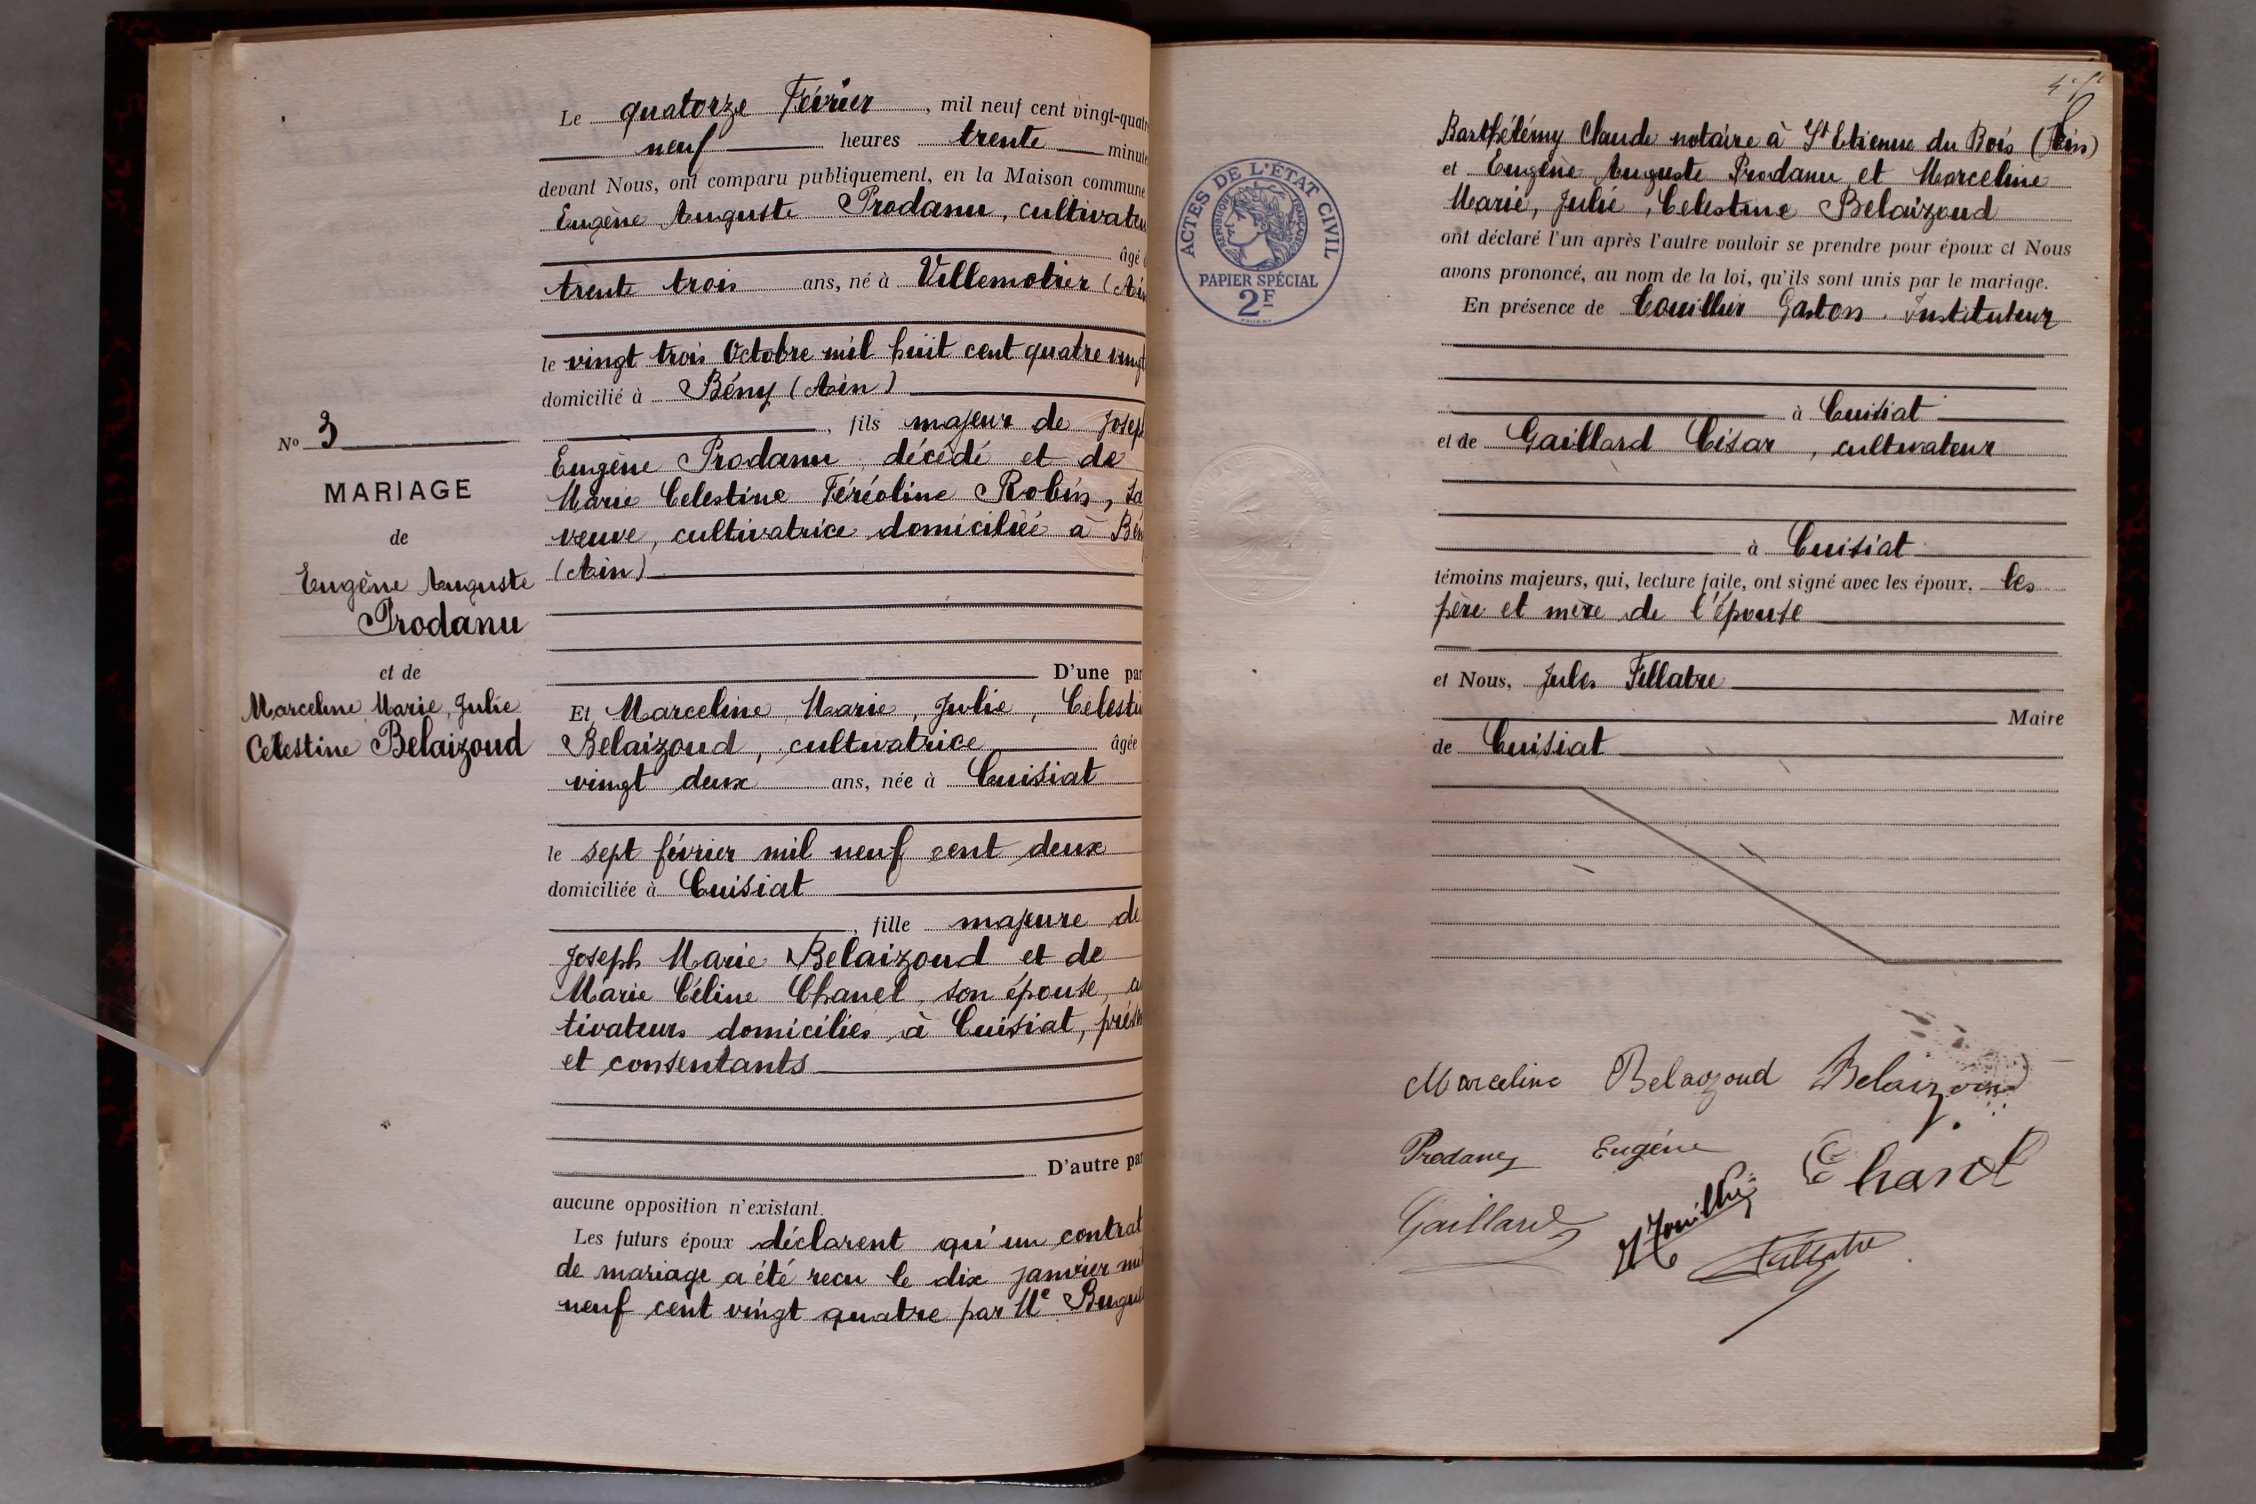 Le quatorze Février, mil neuf cent vingt-quatre
neuf heures trente minute
devant Nous, ont comparu publiquement, en la Maison commune
Eugène Auguste Prodanu, cultivateu
âgé
trente trois ans, né à Villemotier (Ain
le vingt trois Octobre mil huit cent quatre vingt
domicilié à Bény (Ain)
, fils majeur de Josep
Eugène Prodanu, décédé et de
Marie Celestine Féréoline Robin, sa
veuve, cultivatrice domiciliée à Bén
(Ain)
D'une par
Et Marceline, Marie, Julie, Célesti
Belaizoud, cultivatrice âgée
vingt deux ans, née à Cuisiat
le sept février mil neuf cent deux
domiciliée à Cuisiat
, fille majeure de
Joseph Marie Belaizoud et de
Marie Céline Chanel, son épouse, cu
tivateurs domiciliés à Cuisiat, prése
et consentants
D'autre par
aucune opposition n'existant.
Les futurs époux déclarent qu'un contrat
de mariage a été recu le dix janvier mil
neuf cent vingt quatre par Me
No 3
MARIAGE
de
Eugène Auguste
Prodanu
et de
Marceline, Marie, Julie
Celestine Belaizoud
ACTES DE L'ÉTAT CIVIL
RÉPUBLIQUE FRANÇAISE
PAPIER SPÉCIAL
2F
Barthélémy Claude notaire à St Etienne du Bois (Ain)
et Eugène Auguste Prodanu et Marceline
Marie, Julie, Celestine Belaizoud
ont déclaré l'un après l'autre vouloir se prendre pour époux et Nous
avons prononcé, au nom de la loi, qu'ils sont unis par le mariage.
En présence de Couillier Gaston. Instituteur
à Cuisiat
et de Gaillard César, cultivateur
à Cuisiat
témoins majeurs, qui, lecture faite, ont signé avec les époux, les
père et mère de l'épouse
et Nous, Jules Fillatre
Maire
de Cuisiat
Marceline Belaizoud Belaizoud
Prodanu Eugène Chanel
Gaillard
Fillatre